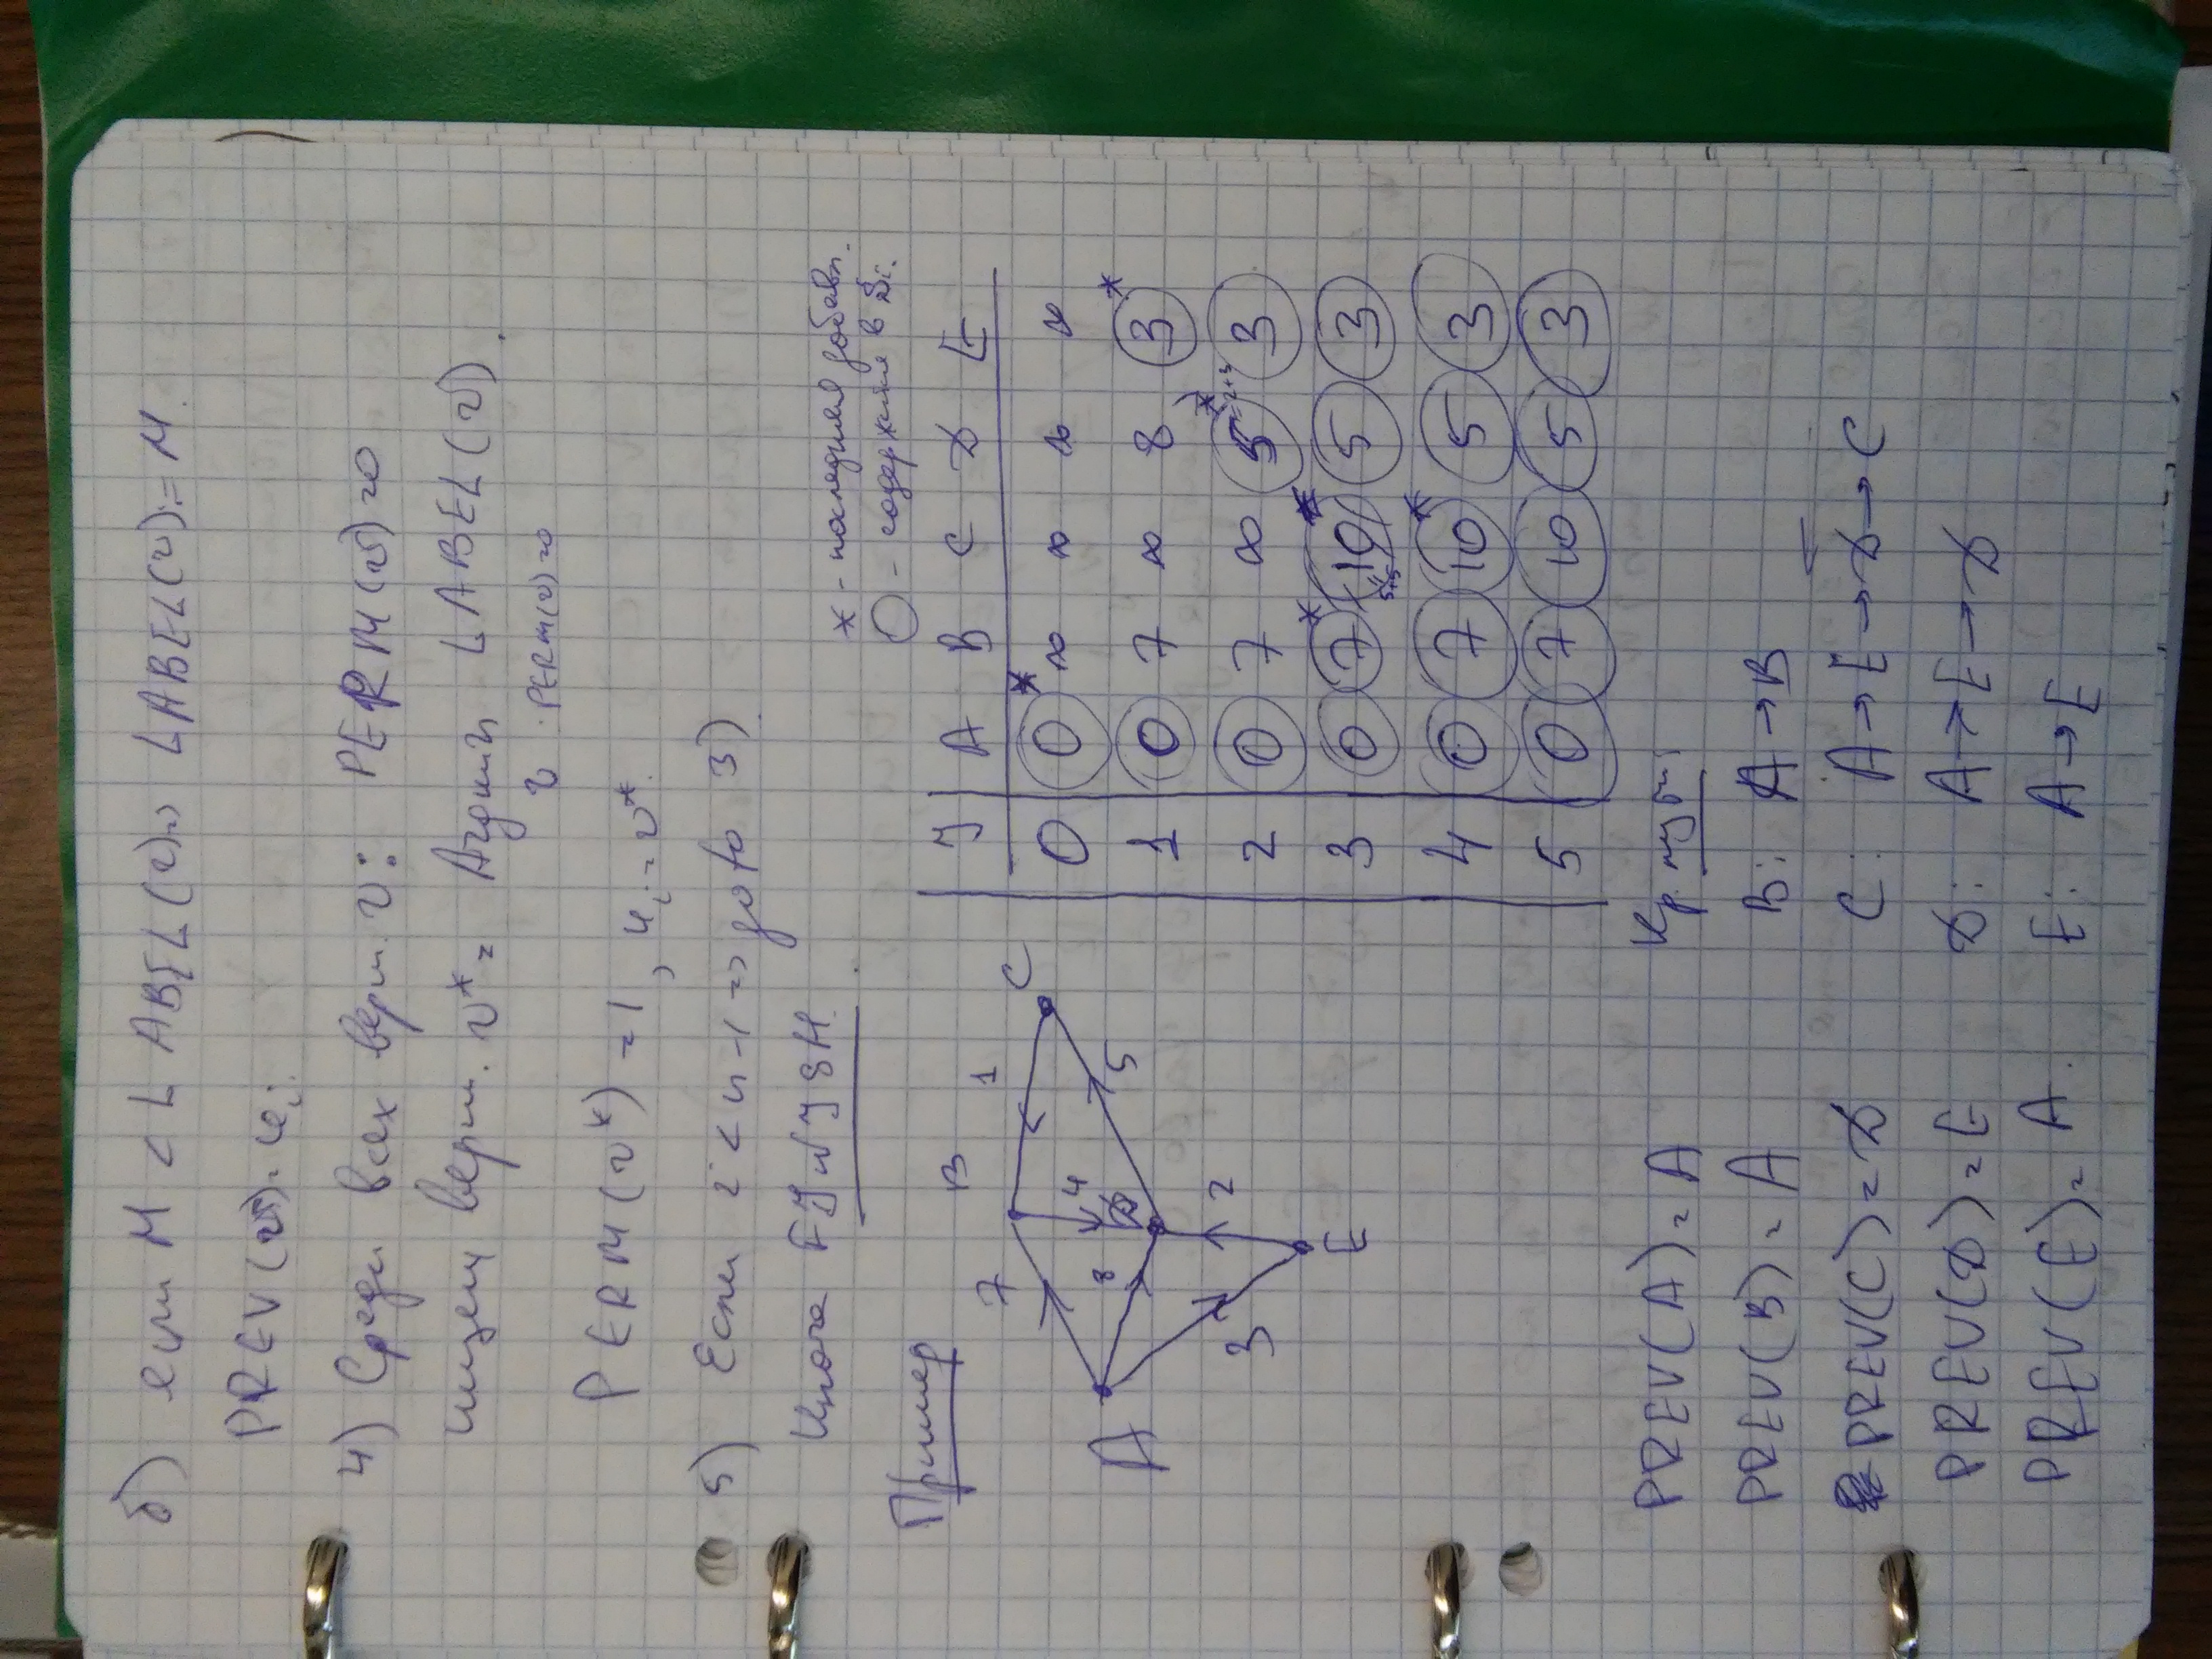 б) если M < LABEL(v) => LABEL(v):=M.
PREV(v)=u_i.
4) Среди всех верш. v: PERM(v)=0
ищем верш. v* = Argmin LABEL(v).
v: PERM(v)=0
PERM(v*)=1, u_i=v*.
5) Если i<n-1 => goto 3)
Иначе FINISH.
Пример
* - последняя добавл.
○ - содержится в S_i.
B 1 C
7 4 8 D 5
A 3 2 E
I A B C D E
0 0* ∞ ∞ ∞ ∞
1 0 7 ∞ 8 3*
2 0 7 ∞ 5* =2+3 3
3 0 7* 10* 5+5 5 3
4 0 7 10* 5 3
5 0 7 10 5 3
PREV(A)=A
PREV(B)=A
PREV(C)=D
PREV(D)=E
PREV(E)=A.
Кр. пути:
B: A→B
C: A→E→D→C
D: A→E→D
E: A→E